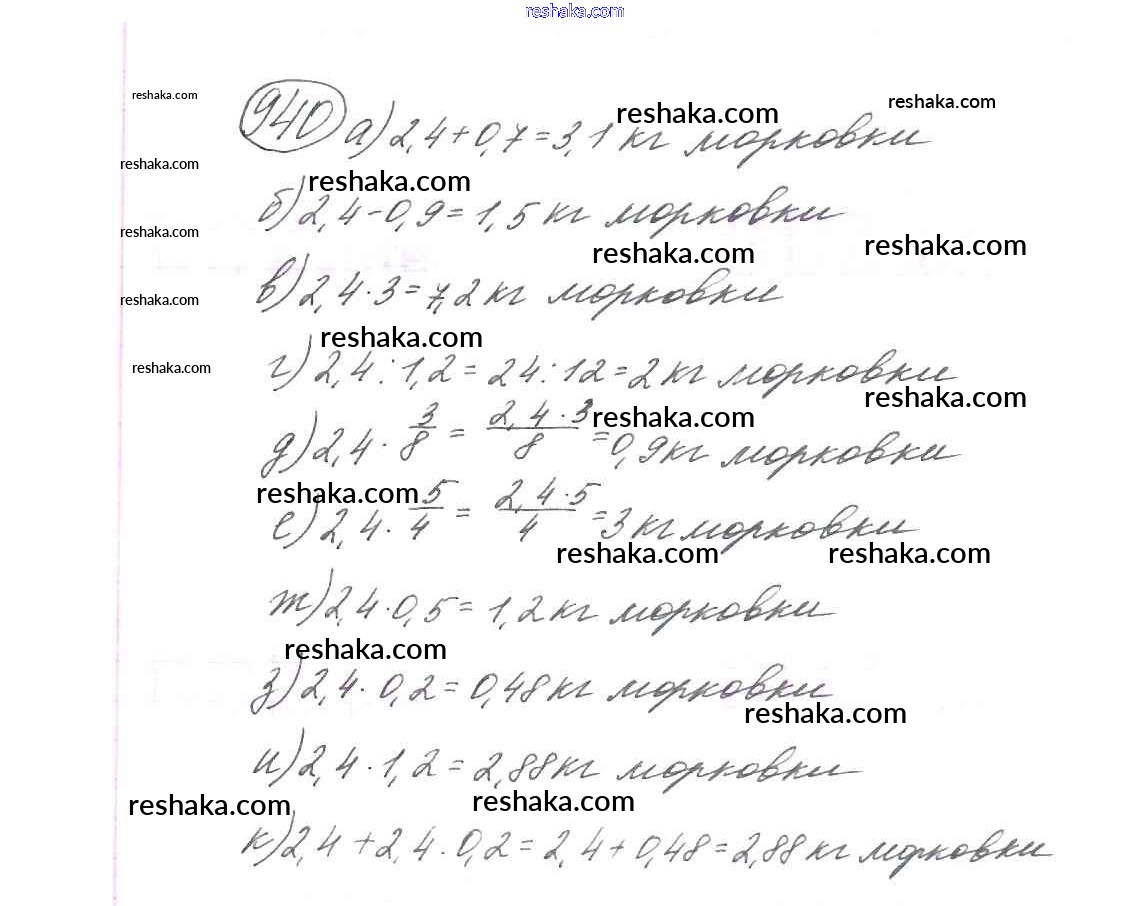 reshaka.com
reshaka.com
reshaka.com reshaka.com
940 а) 2,4 + 0,7 = 3,1 кг морковки
reshaka.com
reshaka.com
б) 2,4 - 0,9 = 1,5 кг морковки
reshaka.com
reshaka.com reshaka.com
в) 2,4 · 3 = 7,2 кг морковки
reshaka.com
reshaka.com
reshaka.com
г) 2,4 : 1,2 = 24 : 12 = 2 кг морковки
reshaka.com
reshaka.com
д) 2,4 · 3/8 = 2,4 · 3/8 = 0,9 кг морковки
reshaka.com
е) 2,4 · 5/4 = 2,4 · 5/4 = 3 кг морковки
reshaka.com reshaka.com
ж) 2,4 · 0,5 = 1,2 кг морковки
reshaka.com
з) 2,4 · 0,2 = 0,48 кг морковки
reshaka.com
и) 2,4 · 1,2 = 2,88 кг морковки
reshaka.com reshaka.com
к) 2,4 + 2,4 · 0,2 = 2,4 + 0,48 = 2,88 кг морковки